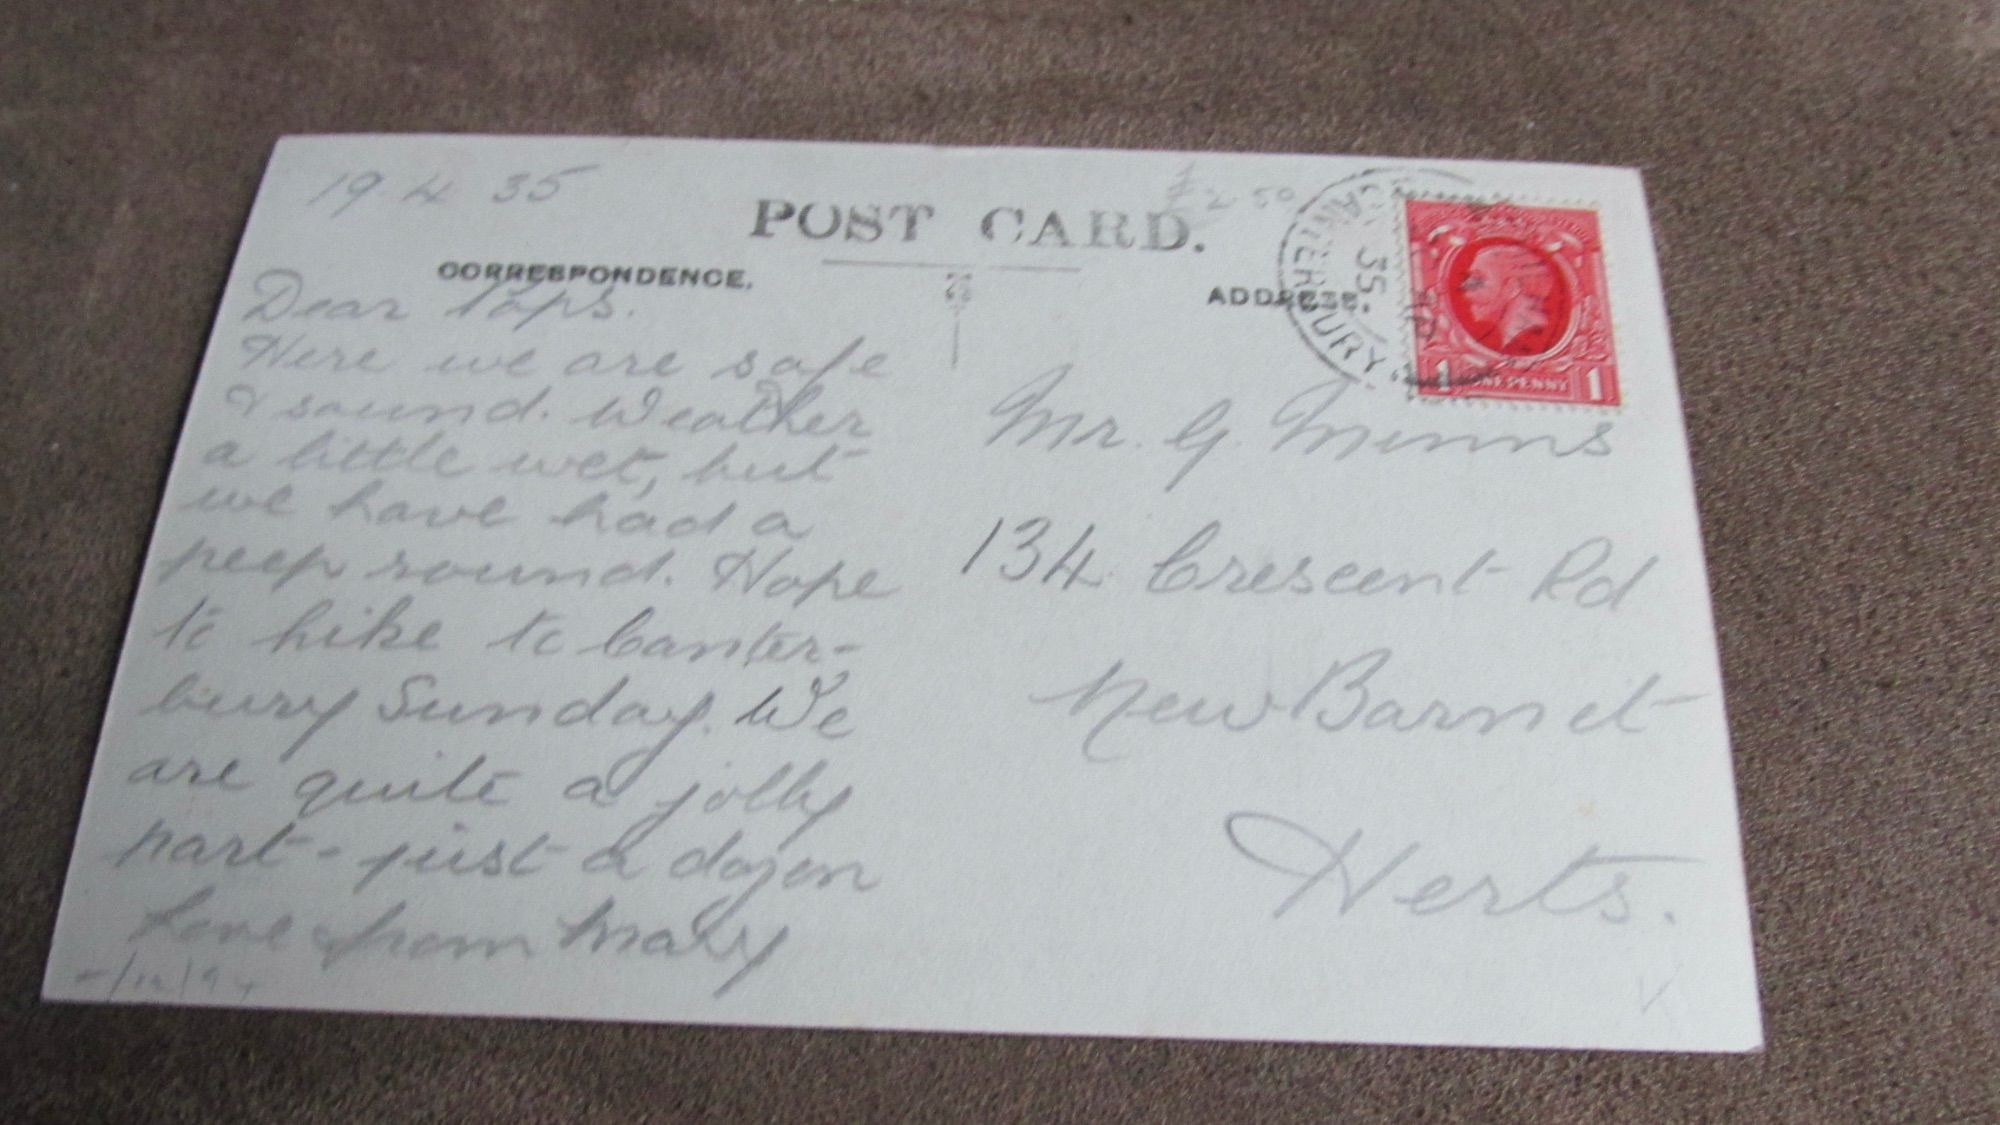 19 4 35
POST CARD.
2 50
CORRESPONDENCE.
ADDRESS.
CANTERBURY
35
ONE PENNY
1 1
Dear Paps.
Here we are safe
& sound. Weather
a little wet, but
we have had a
peep round. Hope
to hike to Canter-
bury Sunday. We
are quite a jolly
part - just a dozen
Love from Mary
Mr. G. Minns
134 Crescent Rd
New Barnet
Herts.